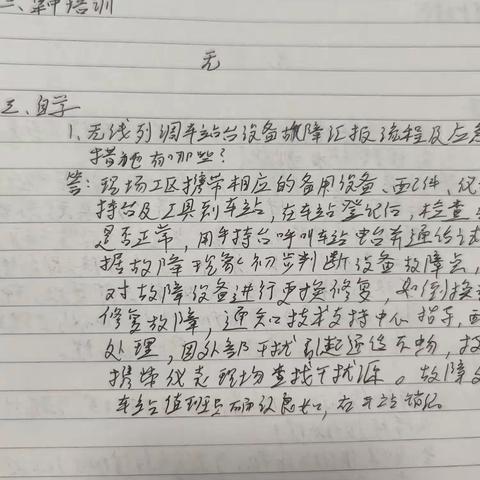 二、集中培训
无
三、自学
1、无线列调车站台设备故障汇报流程及应急
措施有哪些?
答:现场工区携带相应的备用设备、配件、仪
持台及工具到车站,在车站登记后,检查
是否正常,用手持台呼叫车站电台并通话试
据故障现象初步判断设备故障点,
对故障设备进行更换修复,如倒换
修复故障,通知技术支持中心指导,配
处理,因外部干扰引起通话不畅,
携带仪表现场查找干扰源。故障
车站值班员确认良好,在车站销记